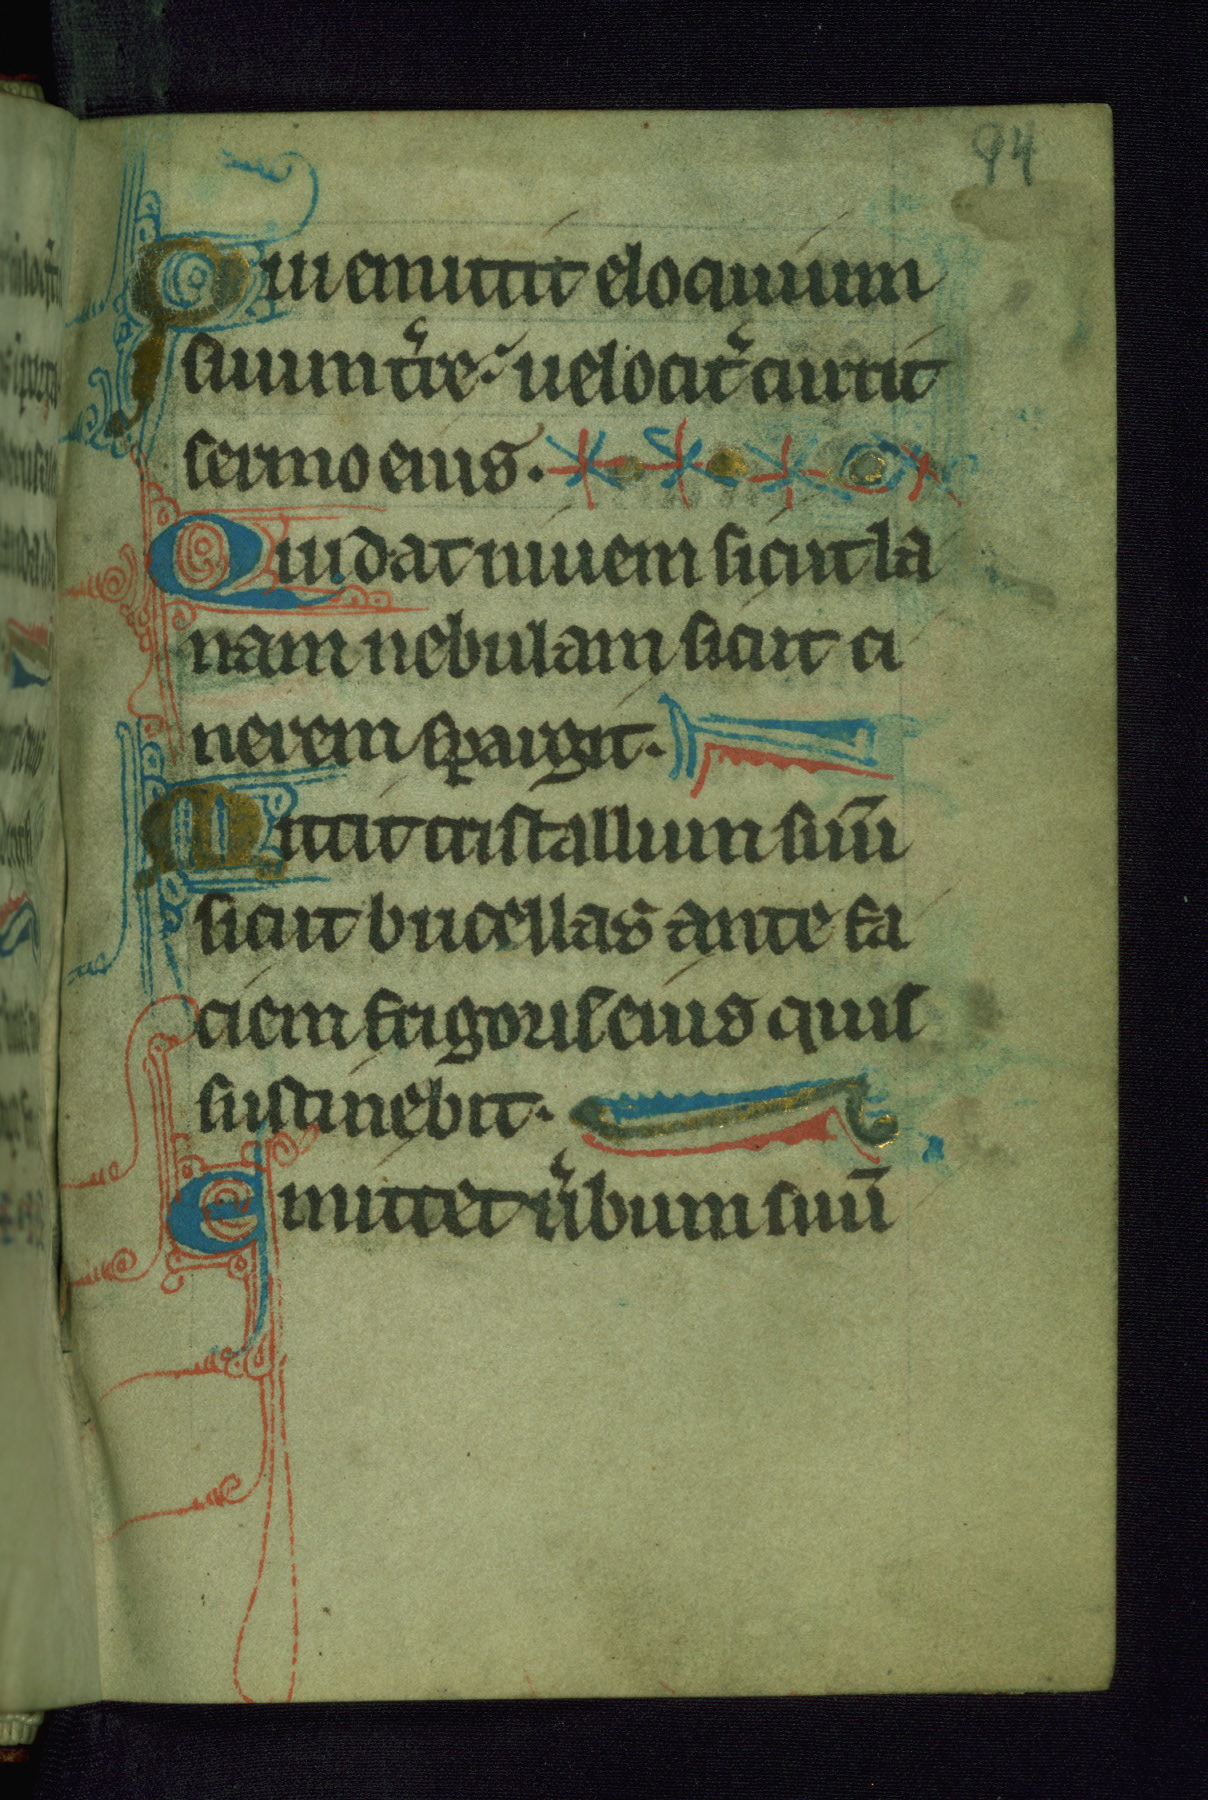 94
Qui emittit eloquium
suum tr̾re: uelocit̾ currit
sermo eius.
Qui dat niuem sicut la
nam nebulam sicut ci
nerem spargit.
Mittit cristallum suū
sicut bucellas ante fa
ciem frigoris eius quis
sustinebit.
Emittet u̾bum suū